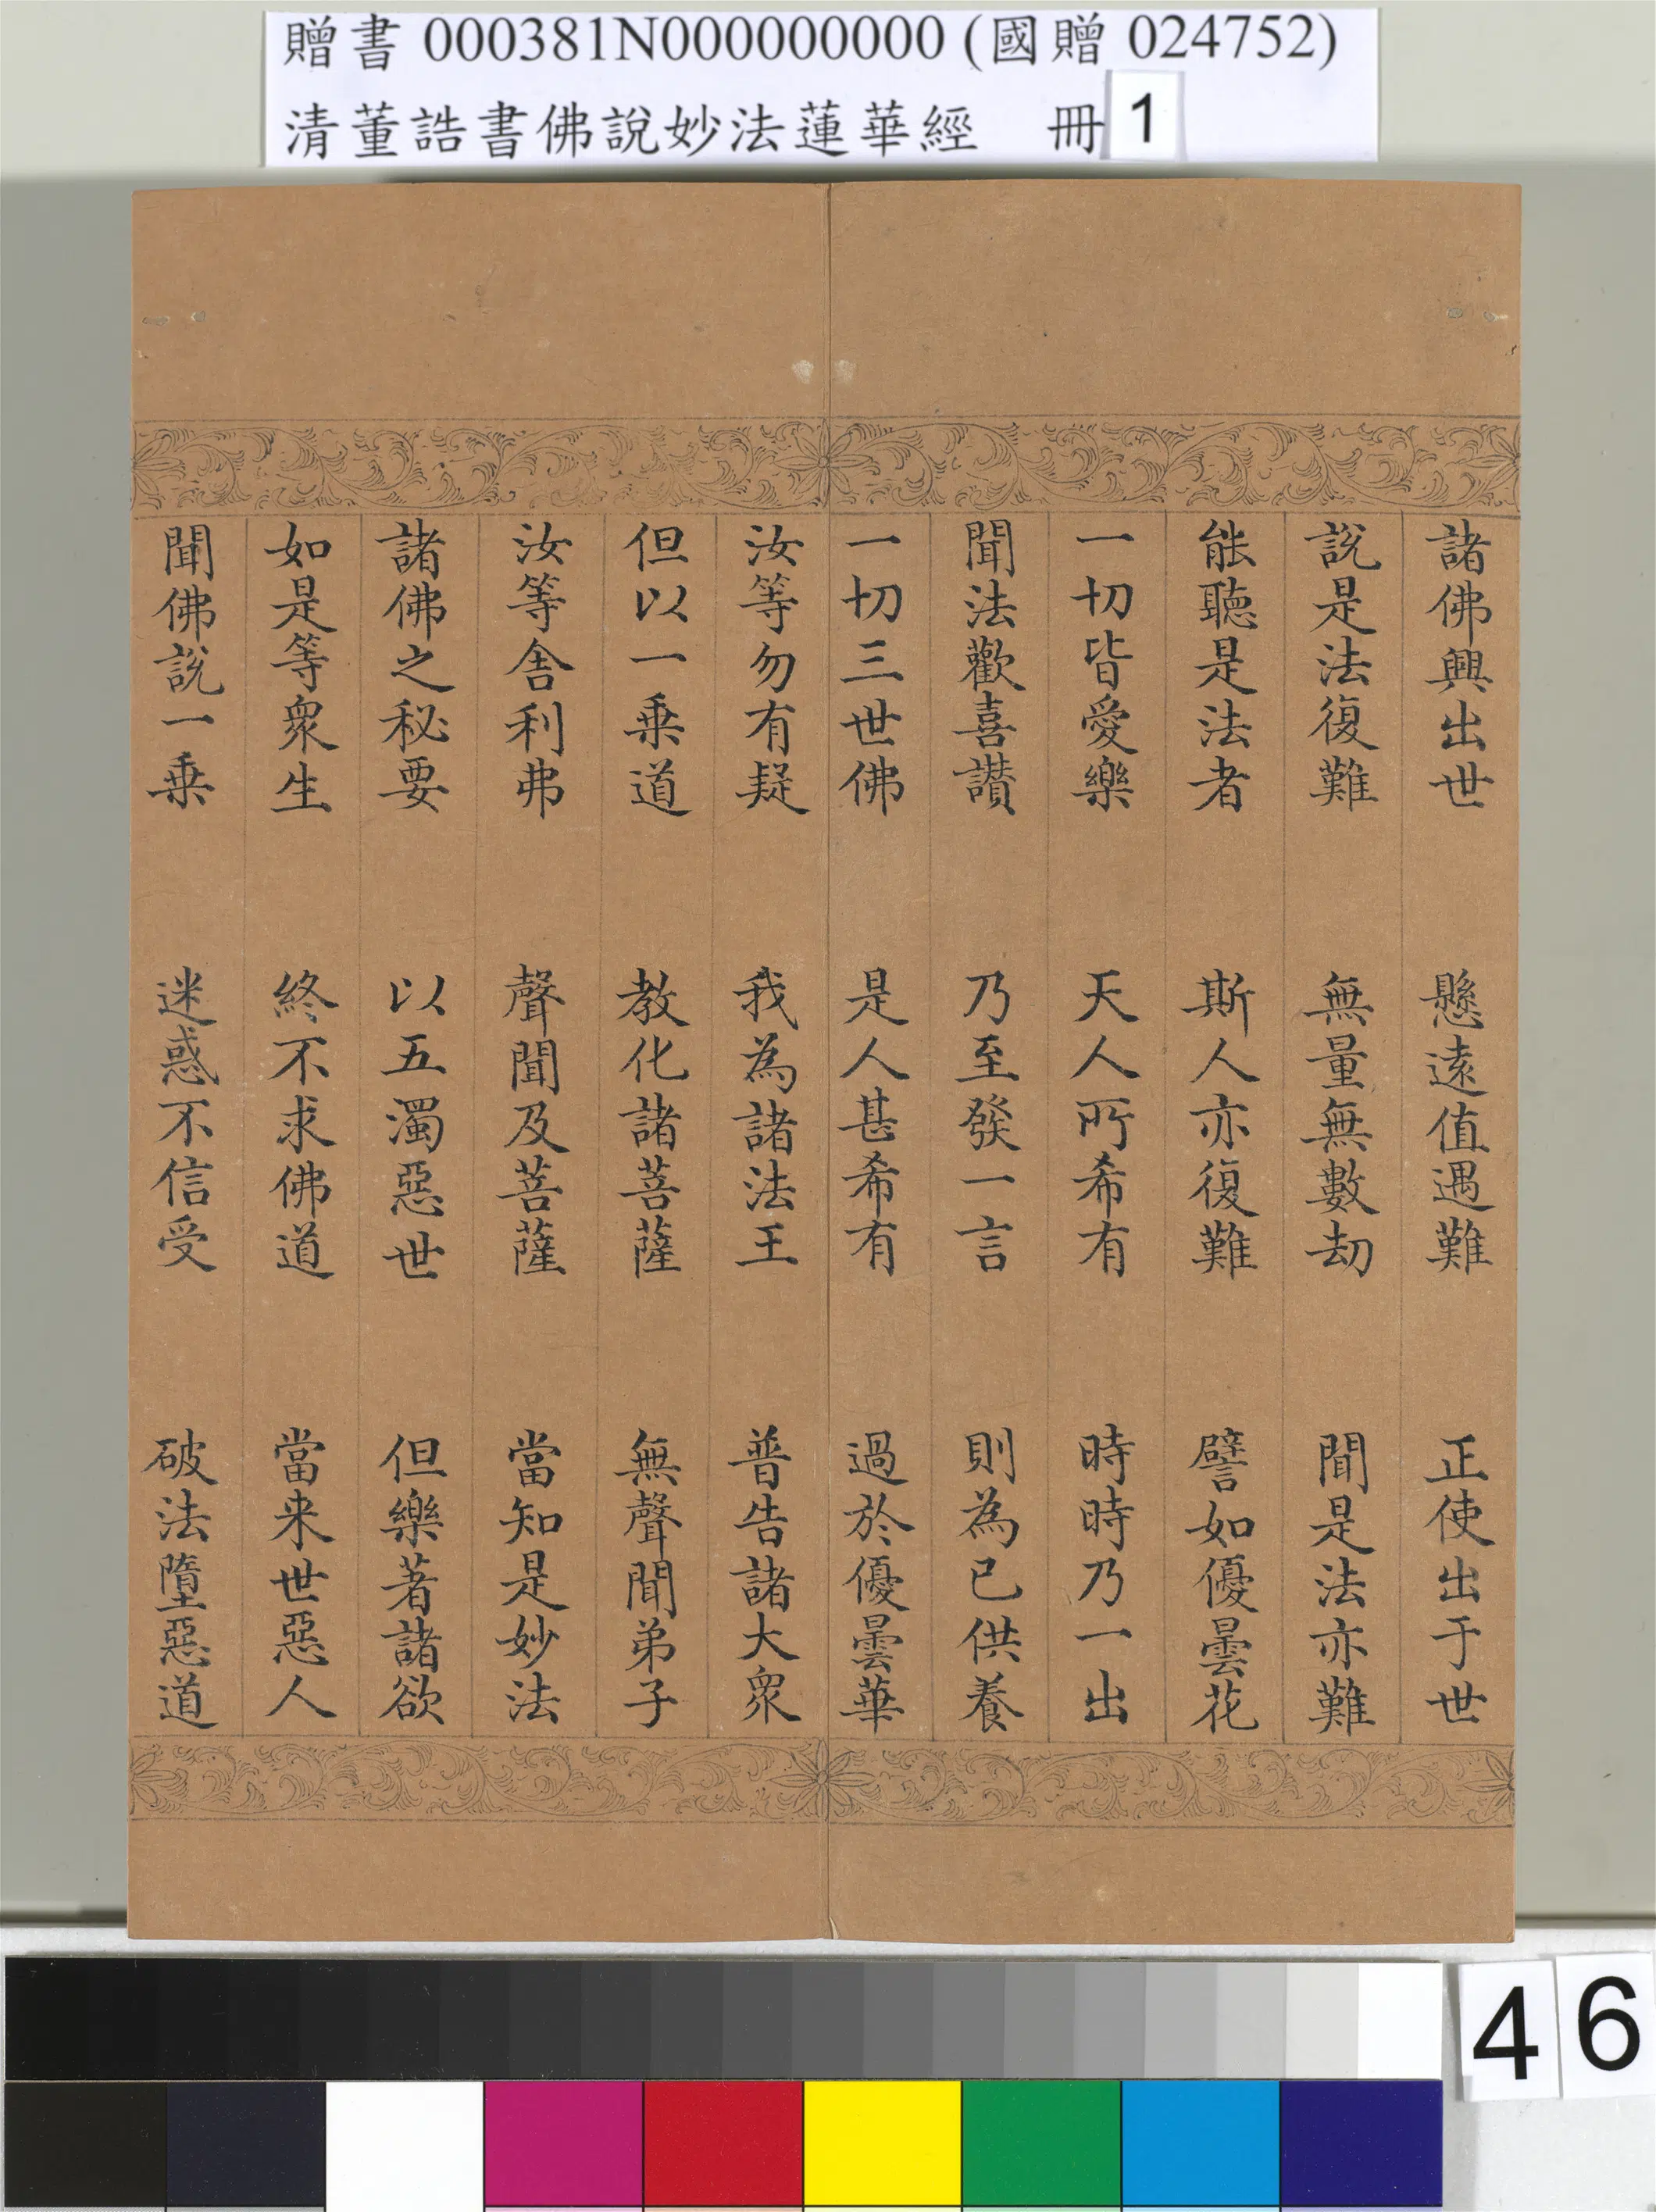 贈書 000381N000000000 (國贈 024752)
清董誥書佛說妙法蓮華經 冊 1
諸佛興出世 懸遠值遇難 正使出于世
說是法復難 無量無數劫 聞是法亦難
能聽是法者 斯人亦復難 譬如優曇花
一切皆愛樂 天人所希有 時時乃一出
聞法歡喜讚 乃至發一言 則為已供養
一切三世佛 是人甚希有 過於優曇華
汝等勿有疑 我為諸法王 普告諸大眾
但以一乘道 教化諸菩薩 無聲聞弟子
汝等舍利弗 聲聞及菩薩 當知是妙法
諸佛之秘要 以五濁惡世 但樂著諸欲
如是等衆生 終不求佛道 當来世惡人
聞佛說一乘 迷惑不信受 破法墮惡道
46